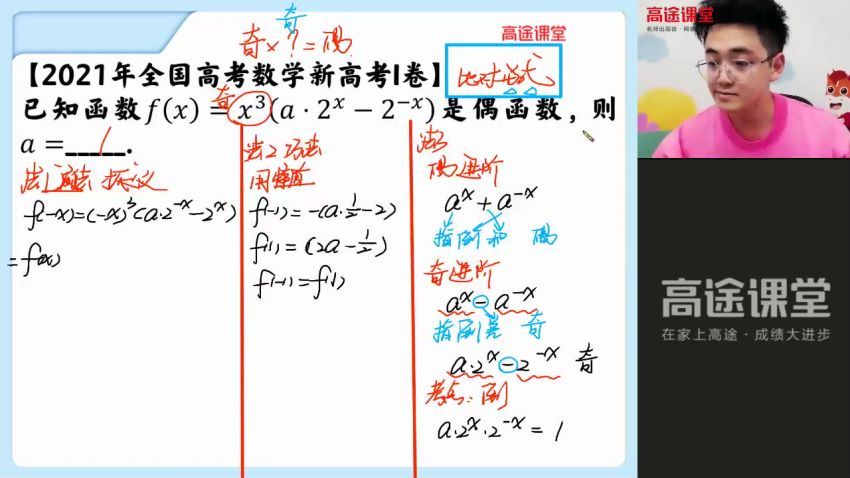 奇
奇×?=偶
高途课堂
【2021年全国高考数学新高考I卷】
比对公式
奇
已知函数f(x) = x³(a · 2ˣ − 2⁻ˣ)是偶函数，则
a =_____.
1
法1 通法 按定义
f(-x)=(-x)³(a·2⁻ˣ-2ˣ)
=f(x)
法2 巧法
用特值
f(-1)=-(a·½-2)
f(1)=(2a-½)
f(-1)=f(1)
法3
偶进阶
aˣ+a⁻ˣ
指倒和 偶
奇进阶
aˣ-a⁻ˣ
指倒差 奇
a·2ˣ-2⁻ˣ 奇
考点：倒
a·2ˣ·2⁻ˣ=1
高途课堂
高途课堂
在家上高途·成绩大进步